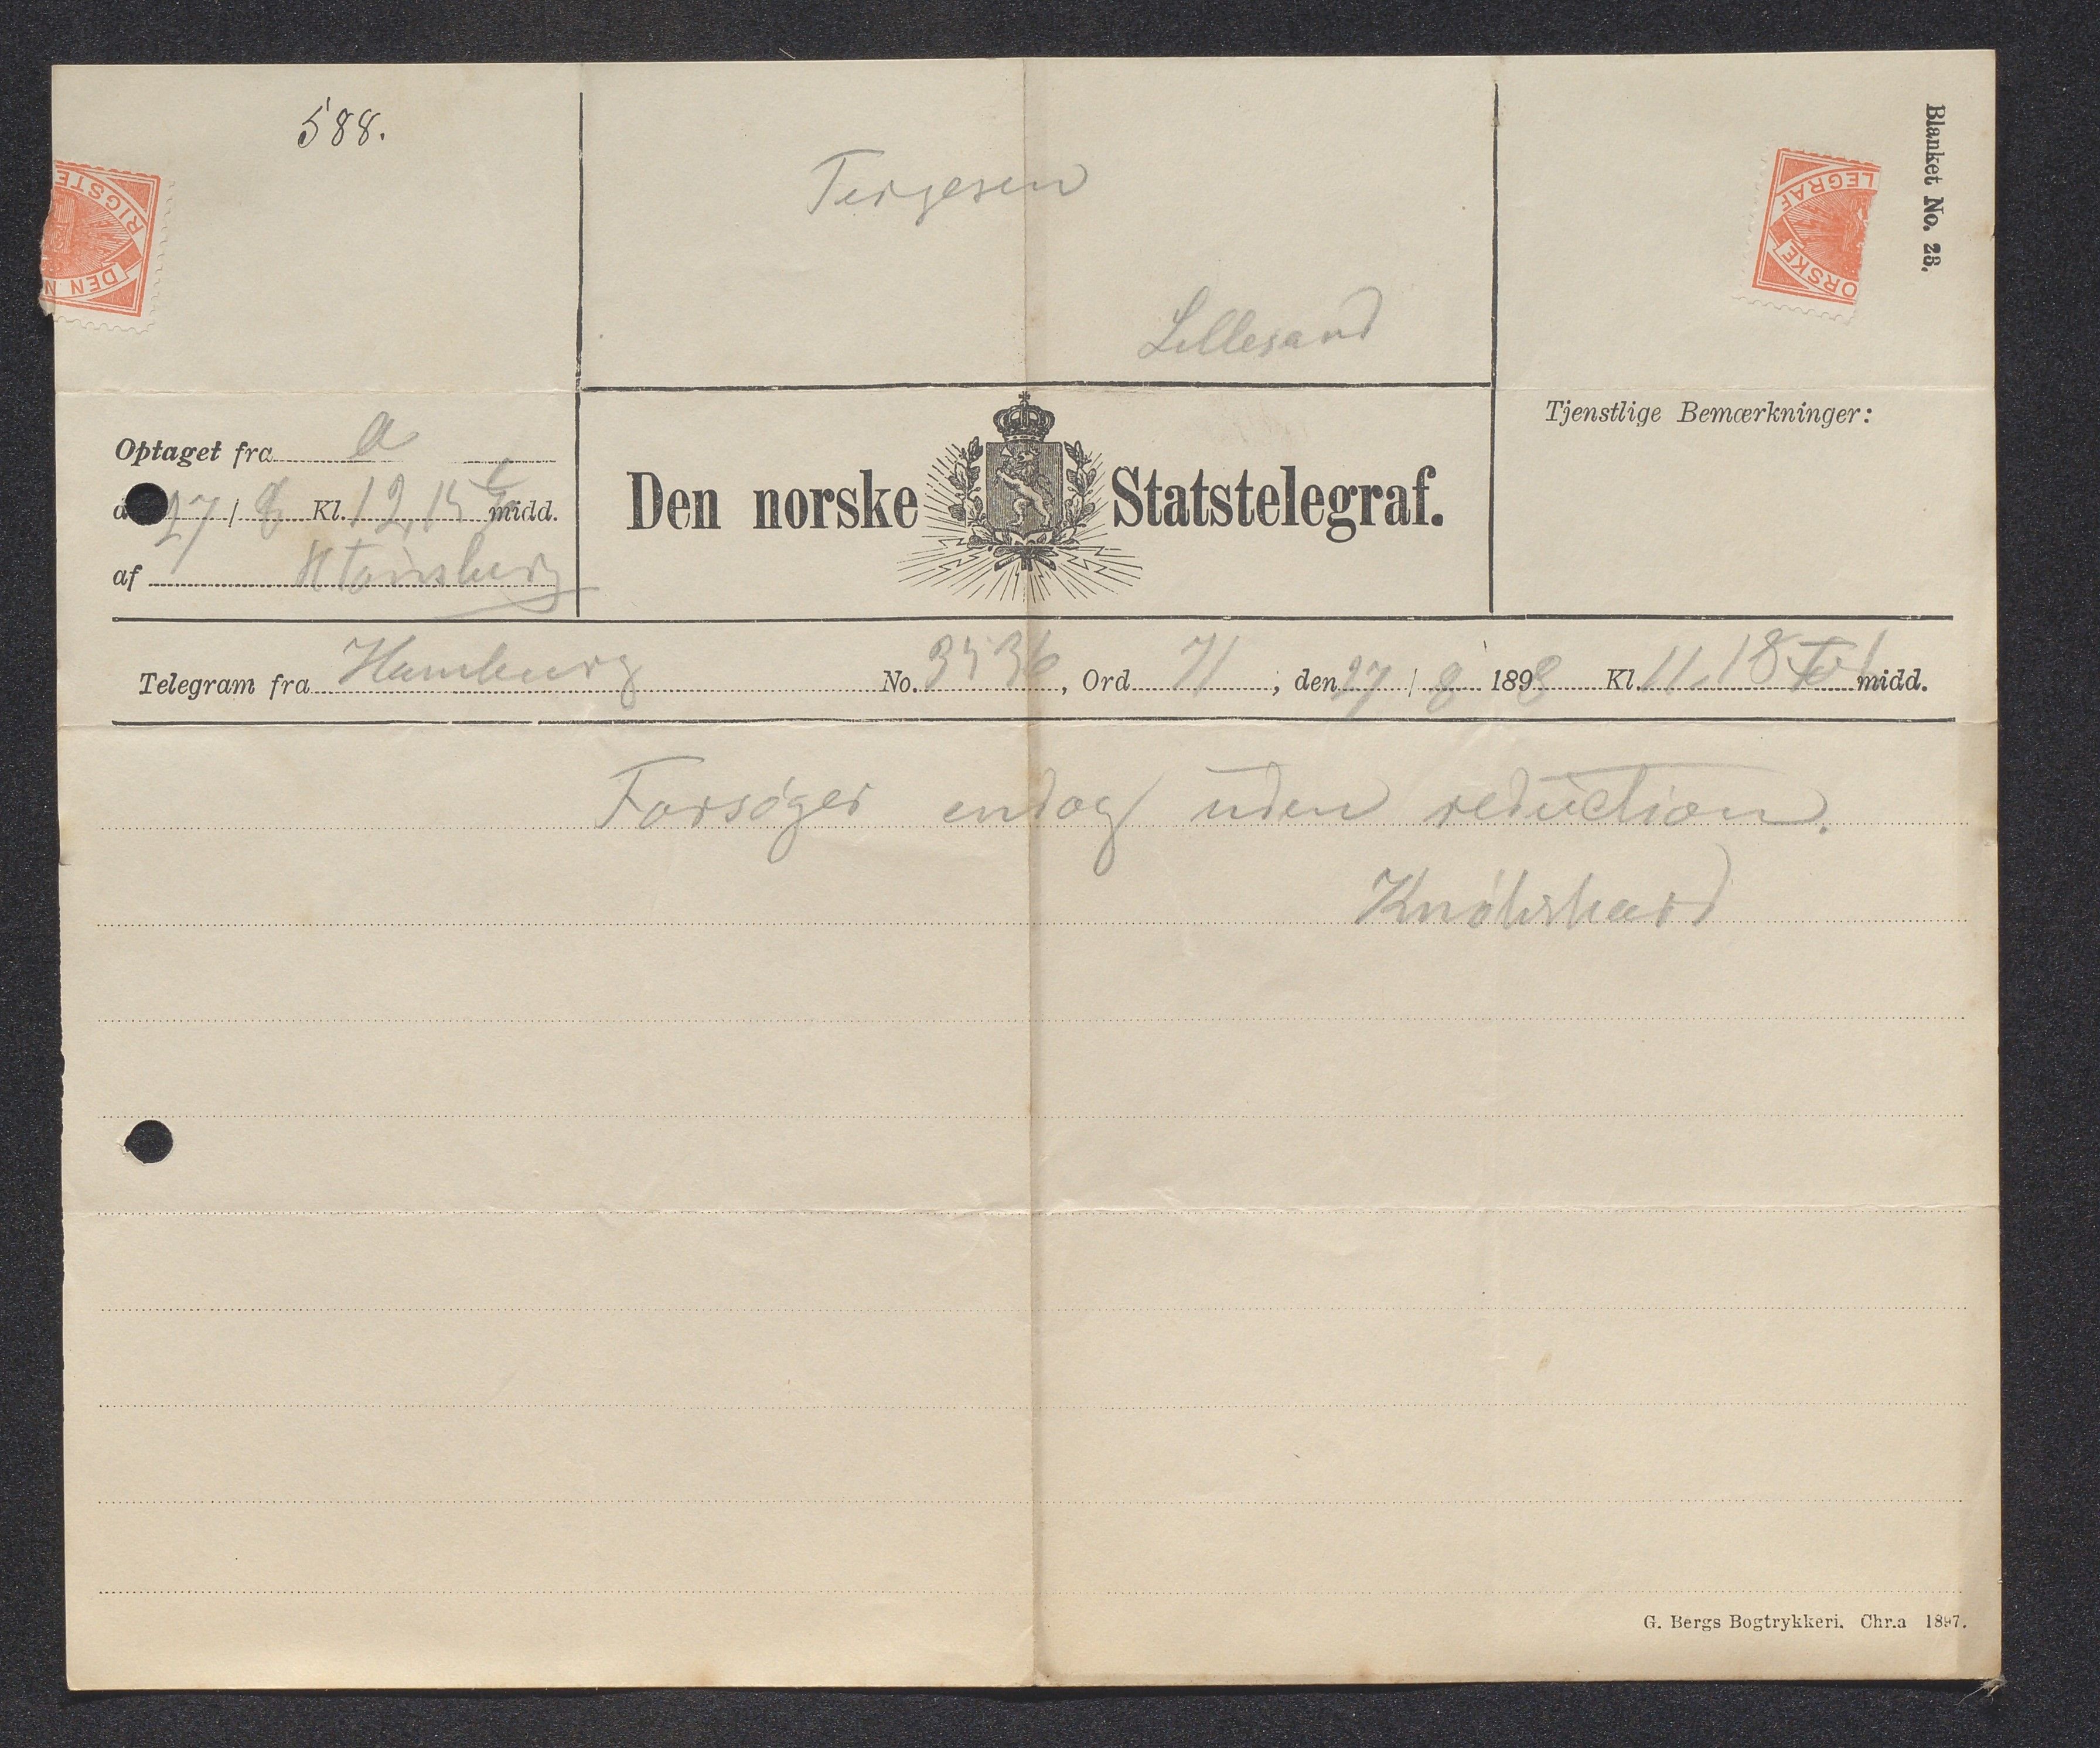 588.
RIGSTE
DEN N
Tergesen
Lillesand
LEGRAF
ORSKE
Blanket No. 28.
Optaget fra a
d 27/8 Kl. 12,15 E midd.
af
Den norske Statstelegraf.
Tjenstlige Bemærkninger:
Telegram fra Hamburg No. 3536, Ord 7/, den 27/8 1898 Kl. 11,18 F midd.
Forsøger endog uden reduction.
Knöhrhard
G. Bergs Bogtrykkeri. Chr.a 1897.